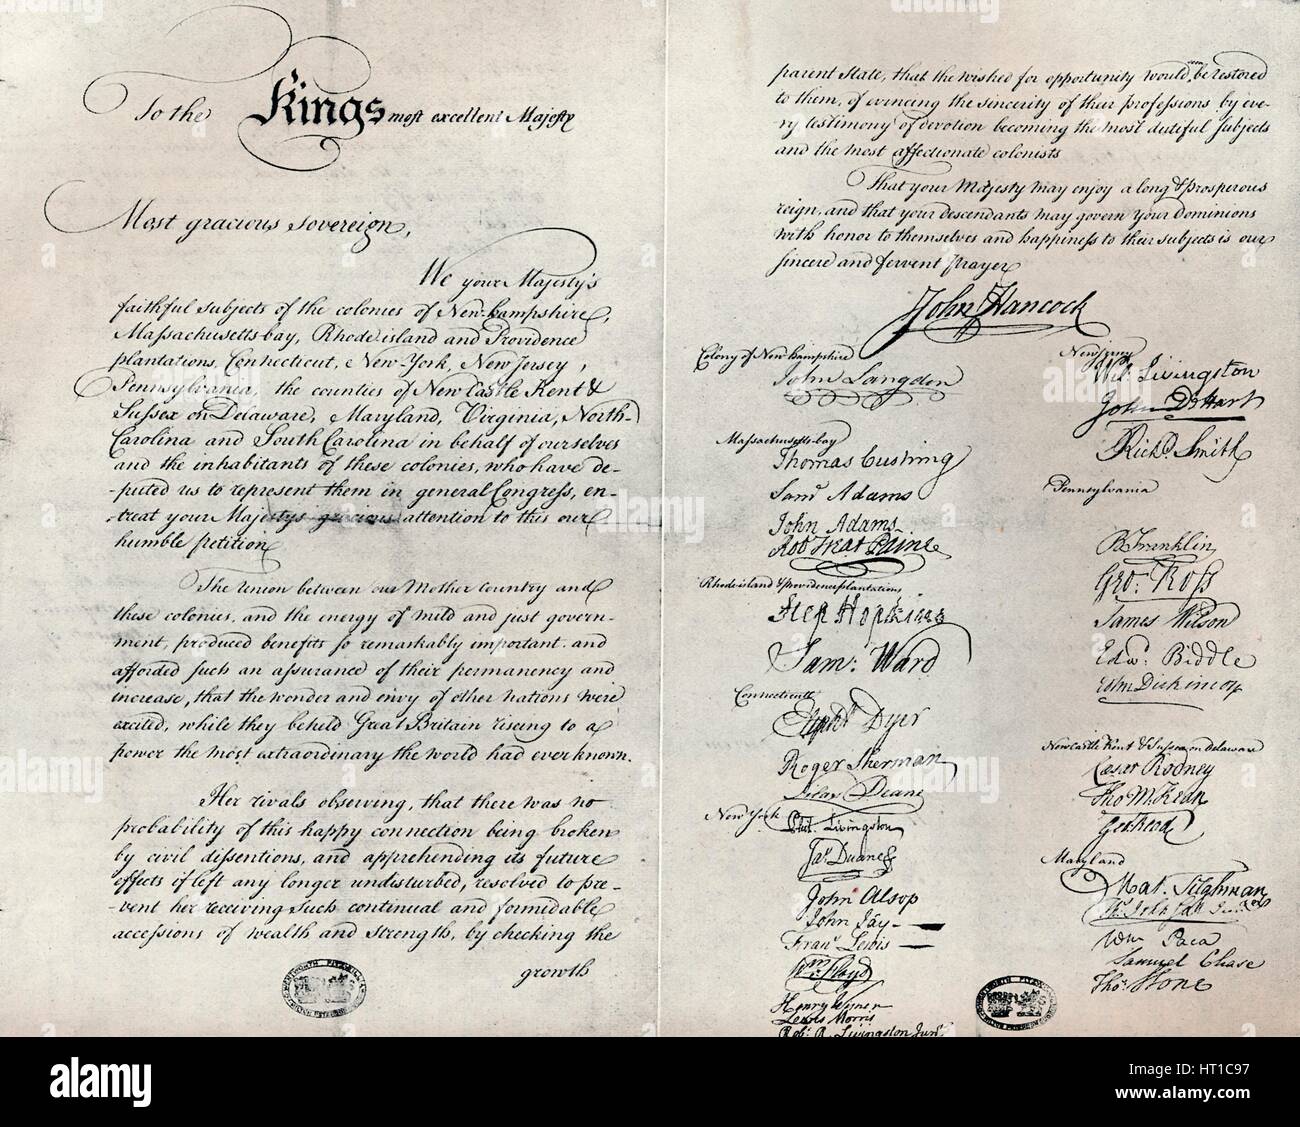 To the Kings most excellent Majesty
Most gracious sovereign,
We your Majesty's
faithful subjects of the colonies of New-hampshire,
Massachusetts-bay, Rhode island and Providence
plantations, Connecticut, New-York, New Jersey,
Pennsylvania, the counties of New Castle Kent &
Sussex on Delaware, Maryland, Virginia, North-
Carolina and South Carolina in behalf of ourselves
and the inhabitants of these colonies, who have de-
puted us to represent them in general Congress, en-
treat your Majestys gracious attention to this our
humble petition
The union between our Mother Country and
these colonies, and the energy of mild and just govern-
ment, produced benefits so remarkably important, and
afforded such an assurance of their permanency and
increase, that the wonder and envy of other nations were
excited, while they beheld Great Britain rising to a
power the most extraordinary the world had ever known.
Her rivals observing, that there was no
probability of this happy connection being broken
by civil dissentions, and apprehending its future
effects if left any longer undisturbed, resolved to pre-
-vent her receiving such continual and formidable
accessions of wealth and strength, by checking the
growth
parent State, that the wished for opportunity would soon be restored
to them, of evincing the sincerity of their professions by eve-
ry testimony of devotion becoming the most dutiful subjects
and the most affectionate colonists
That your Majesty may enjoy a long & prosperous
reign, and that your descendants may govern your Dominions
with honor to themselves and happiness to their subjects is our
sincere and fervent prayer
John Hancock
Colony of New hampshire
John Langdon
Massachusetts-bay
Thomas Cushing
Saml Adams
John Adams
Rob Treat Paine
Rhode island & providence plantations
Step Hopkins
Sam: Ward
Connecticut
Elipht Dyer
Roger Sherman
Silas Deane
New York
Phil. Livingston
Jas Duane
John Alsop
John Jay
Frans Lewis
Wm Floyd
Henry Wisner
Lewis Morris
Robt R. Livingston Junr
New Jersey
Wil. Livingston
John D Hart
Richd. Smith
Pennsylvania
B Franklin
Geo. Ross
James Wilson
Edwd. Biddle
John Dickinson
Newcastle Kent & Sussex on Delaware
Caesar Rodney
Tho M. Kean
Geo Read
Maryland
Mat. Tilghman
Ths. Johnson Junr
Wm Paca
Samuel Chase
Thos. Stone
alamy
HT1C97
www.alamy.com